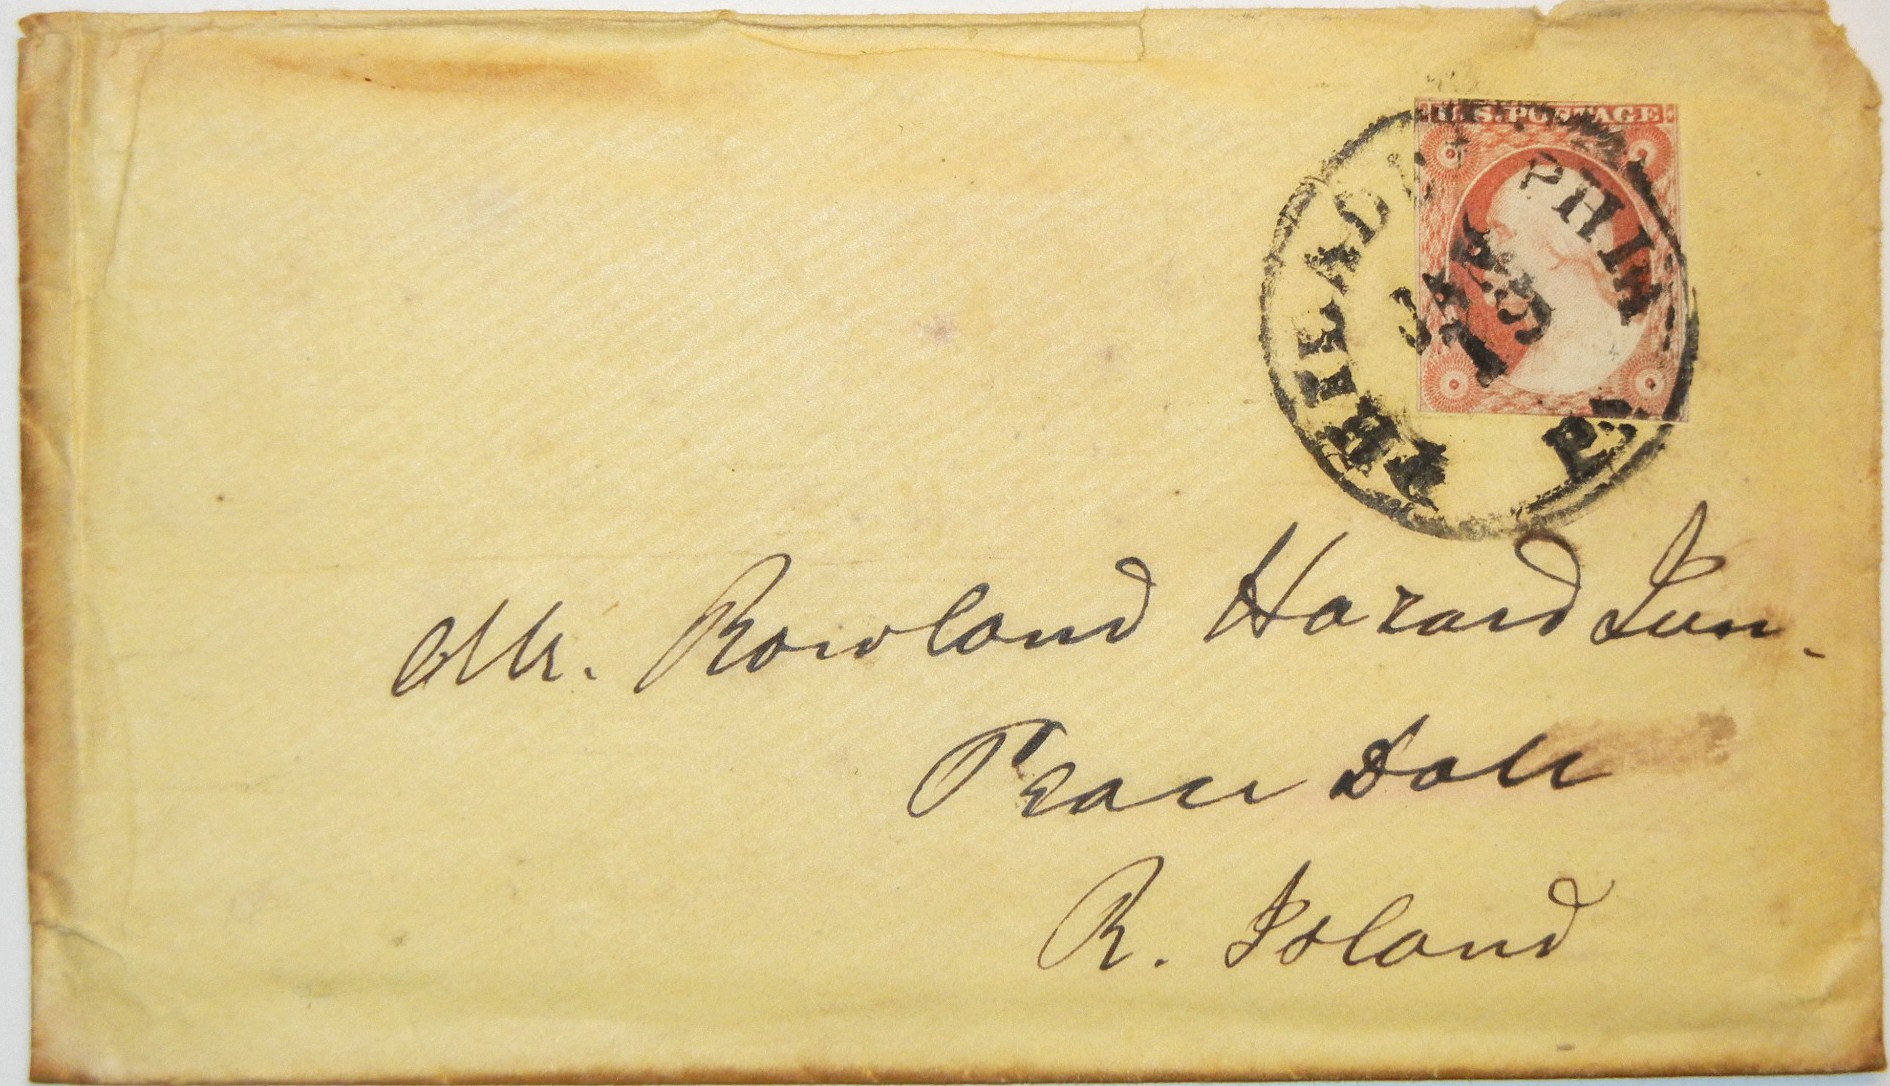 U.S. POSTAGE
PHILADELPHIA Pa.
JAN
Mr. Rowland Hazard Jun.
Peace Dale
R. Island